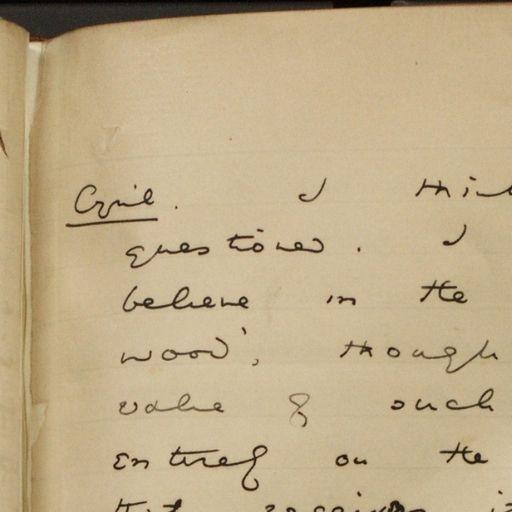 Cyril. I think
questioned. I
believe in the
wood', though
value of such
entirely on the
that